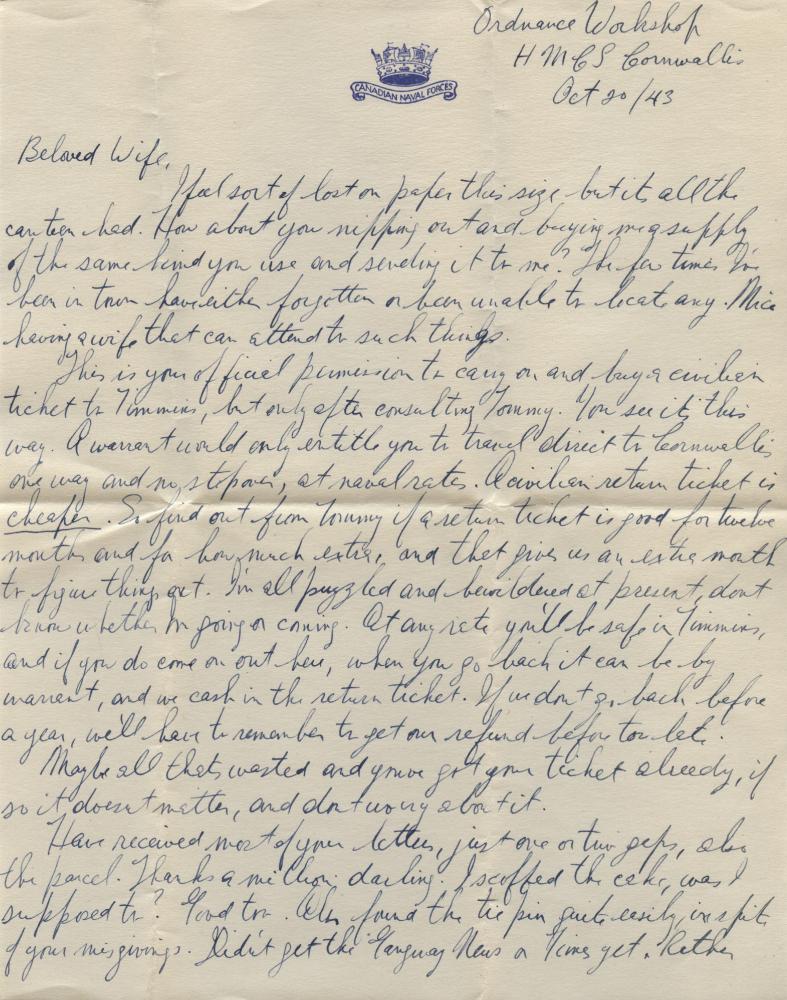 Ordnance Workshop
HMCS Cornwallis
Oct 20/43
CANADIAN NAVAL FORCES
Beloved Wife,
I feel sort of lost on paper this size but its all the
canteen had. How about you nipping out and buying me a supply
of the same kind you use and sending it to me? The few times I've
been in town have either forgotten or been unable to locate any. Nice
having a wife that can attend to such things.
This is your official permission to carry on and buy a civilian
ticket to Timmins, but only after consulting Tommy. You see its this
way. A warrant would only entitle you to travel direct to Cornwallis
one way and no stopover, at naval rates. A civilian return ticket is
cheaper. So find out from Tommy if a return ticket is good for twelve
months and for how much extra, and that gives us an extra month
to figure things out. I'm all puzzled and bewildered at present, dont
know whether I'm going or coming. At any rate you'll be safe in Timmins,
and if you do come on out here, when you go back it can be by
warrant, and we cash in the return ticket. If we dont go back before
a year, we'll have to remember to get our refund before too late.
Maybe all thats wasted and youve got your ticket already, if
so it doesnt matter, and dont worry about it.
Have received most of your letters, just one or two gaps, also
the parcel. Thanks a million darling. I scoffed the cake, was I
supposed to? Good too. Also found the tie pin quite easily in spite
of your misgivings. Didn't get the Tanguay News or Times yet. Rather